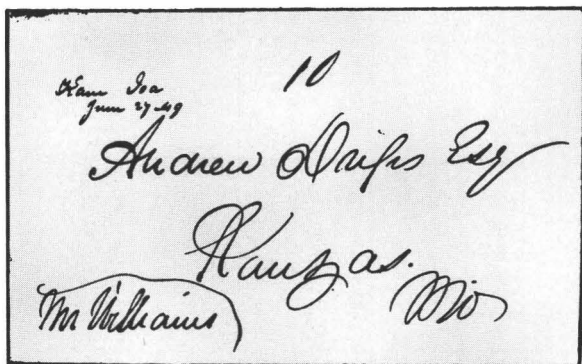 10
Kanw Ioa
June 27-49
Andrew Drips Esq
Kanzas.
Mo
Mr Williams